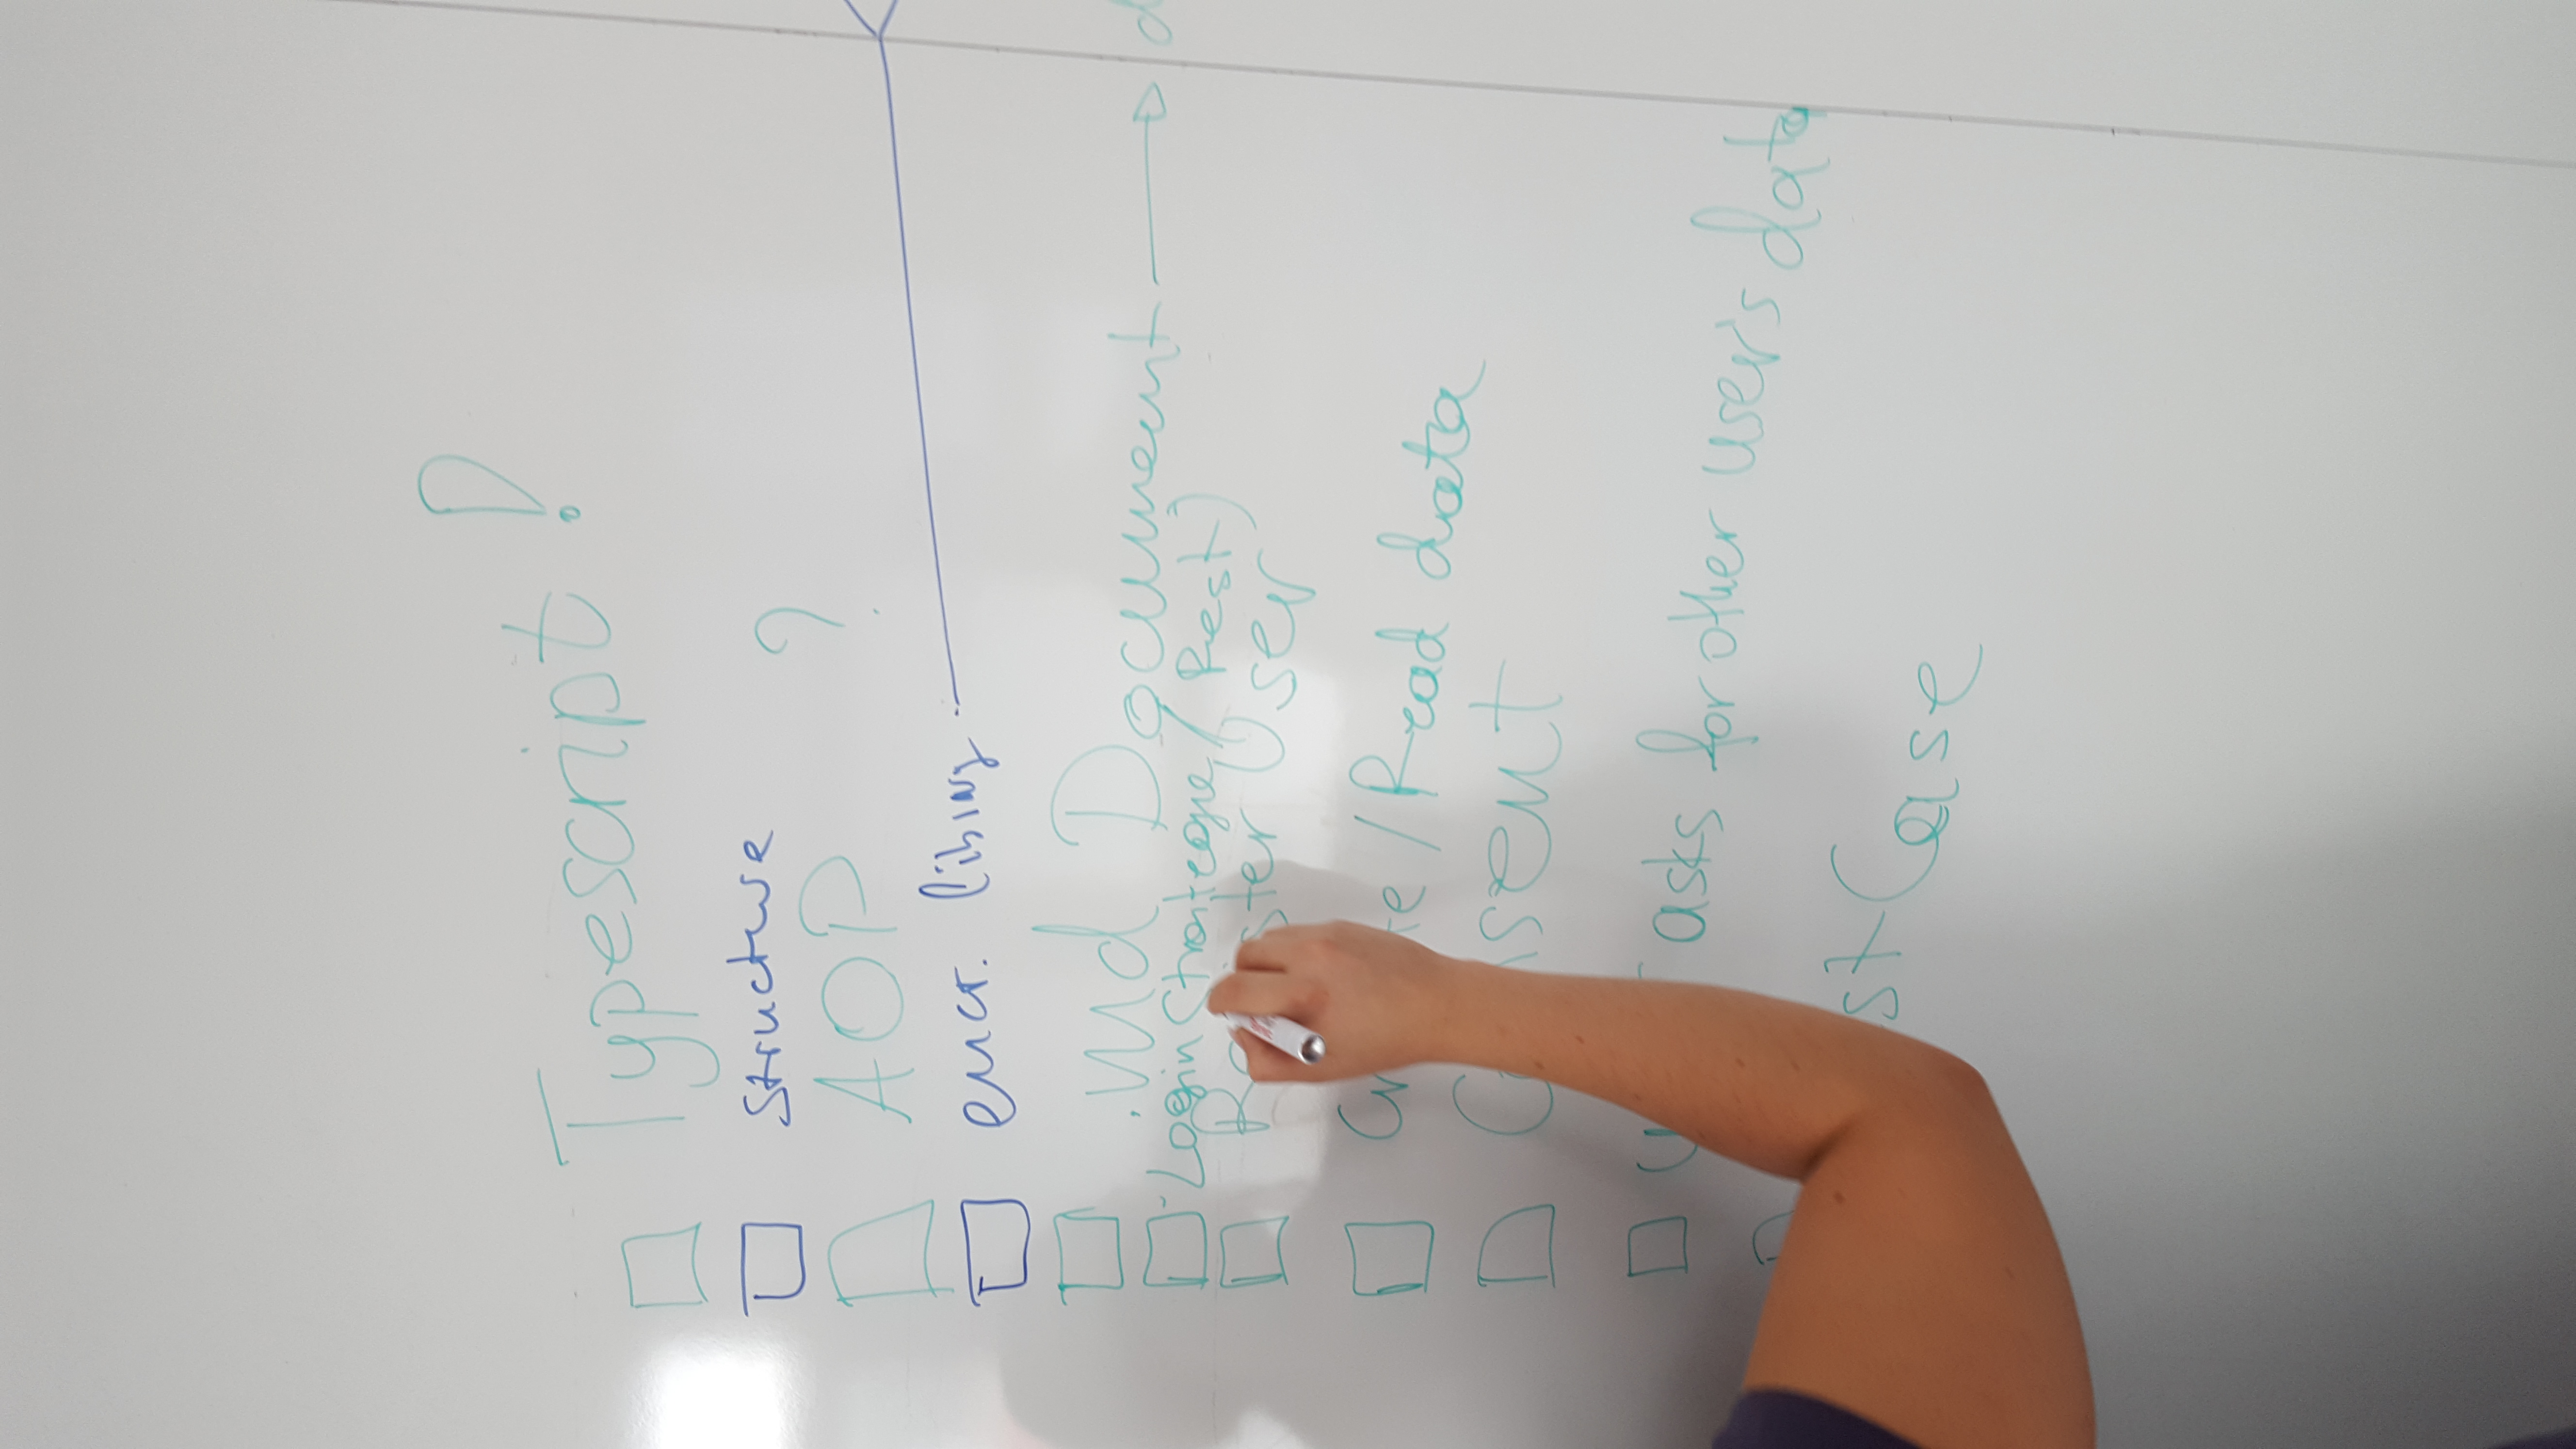 Typescript !
structure
AOP ?
encr. library
.md Document
Login Strategie (Rest)
Register User
Create / Read data
Consent
asks for other user's data
Case